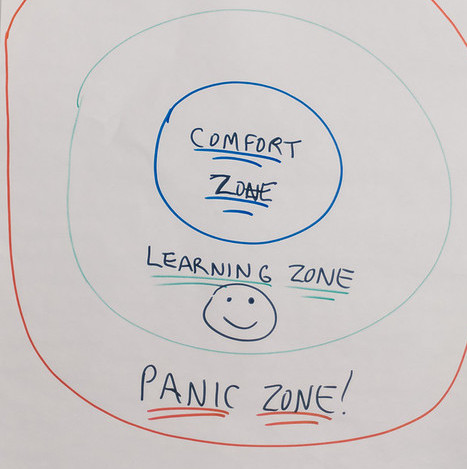 COMFORT
ZONE
LEARNING ZONE
PANIC ZONE!